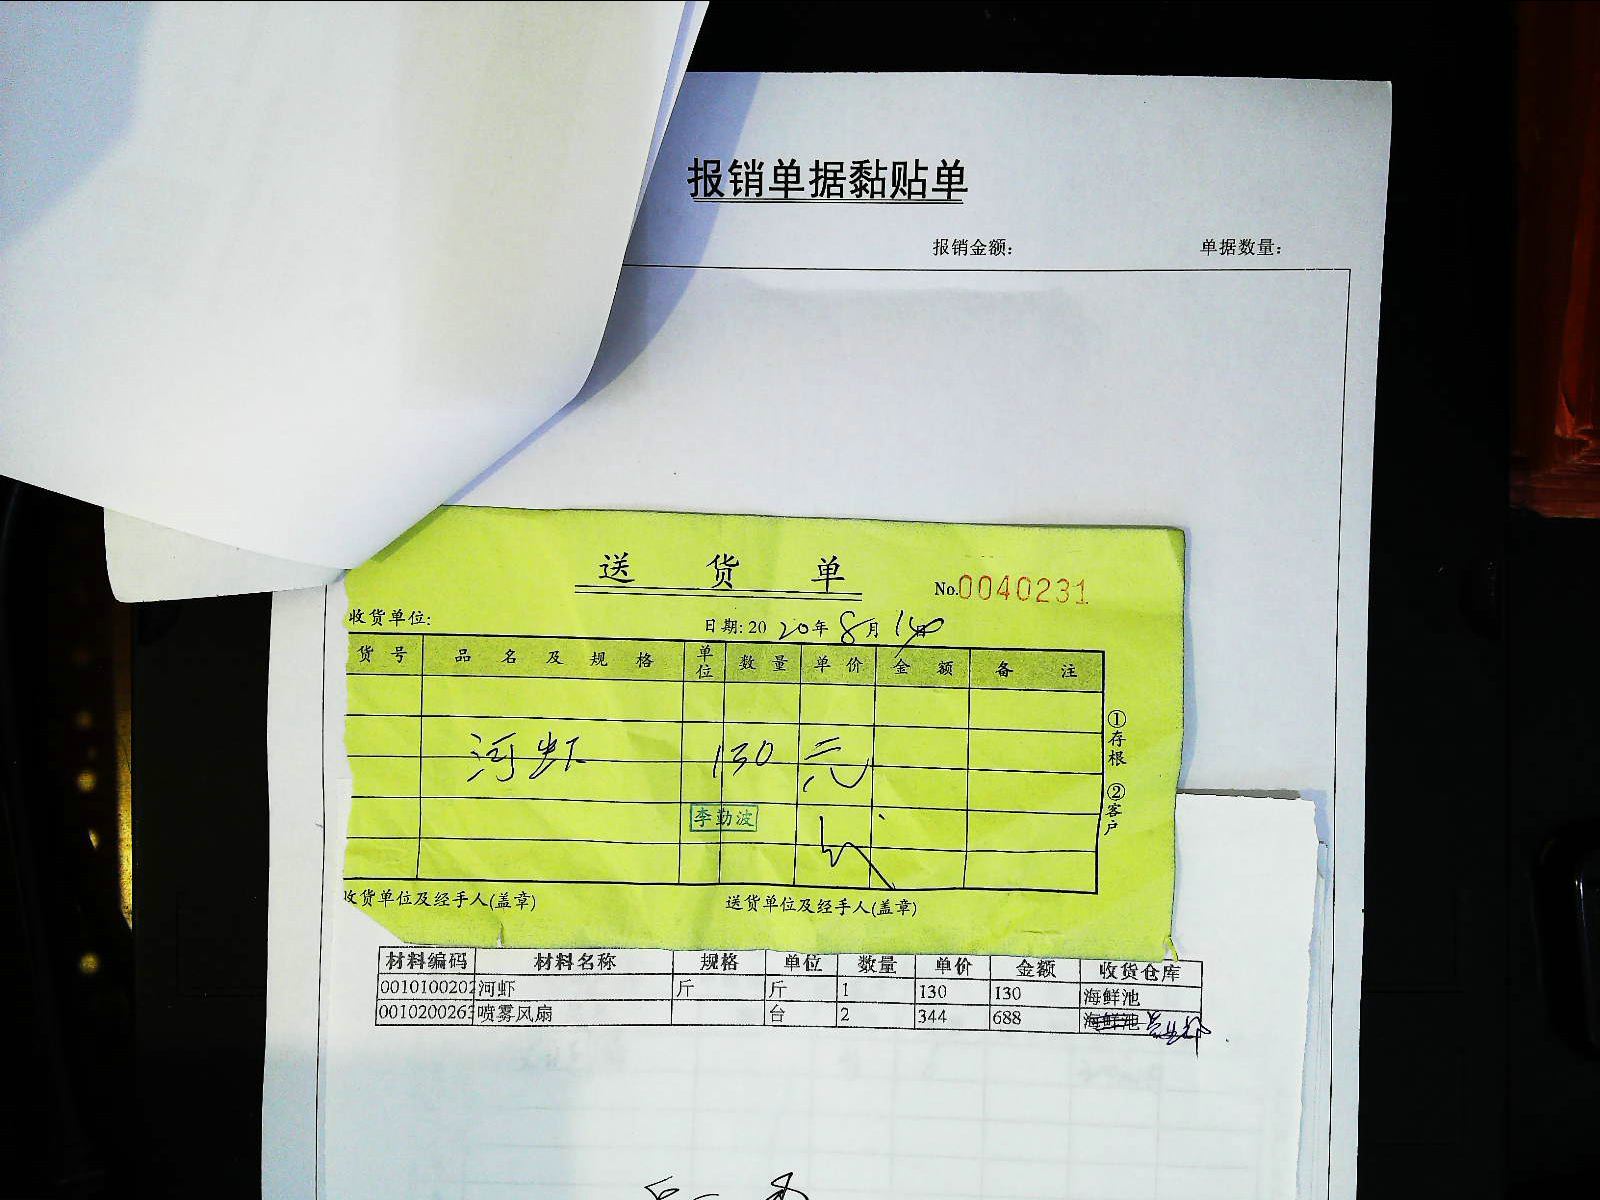 报销单据黏贴单
报销金额: 单据数量:
送货单
No.0040231
收货单位: 日期: 2020年8月14日
货号 品名及规格 单位 数量 单价 金额 备注
河虾 130元
李勤波
①存根 ②客户
收货单位及经手人(盖章) 送货单位及经手人(盖章)
材料编码 材料名称 规格 单位 数量 单价 金额 收货仓库
0010100202 河虾 斤 斤 1 130 130 海鲜池
0010200263 喷雾风扇 台 2 344 688 海鲜池